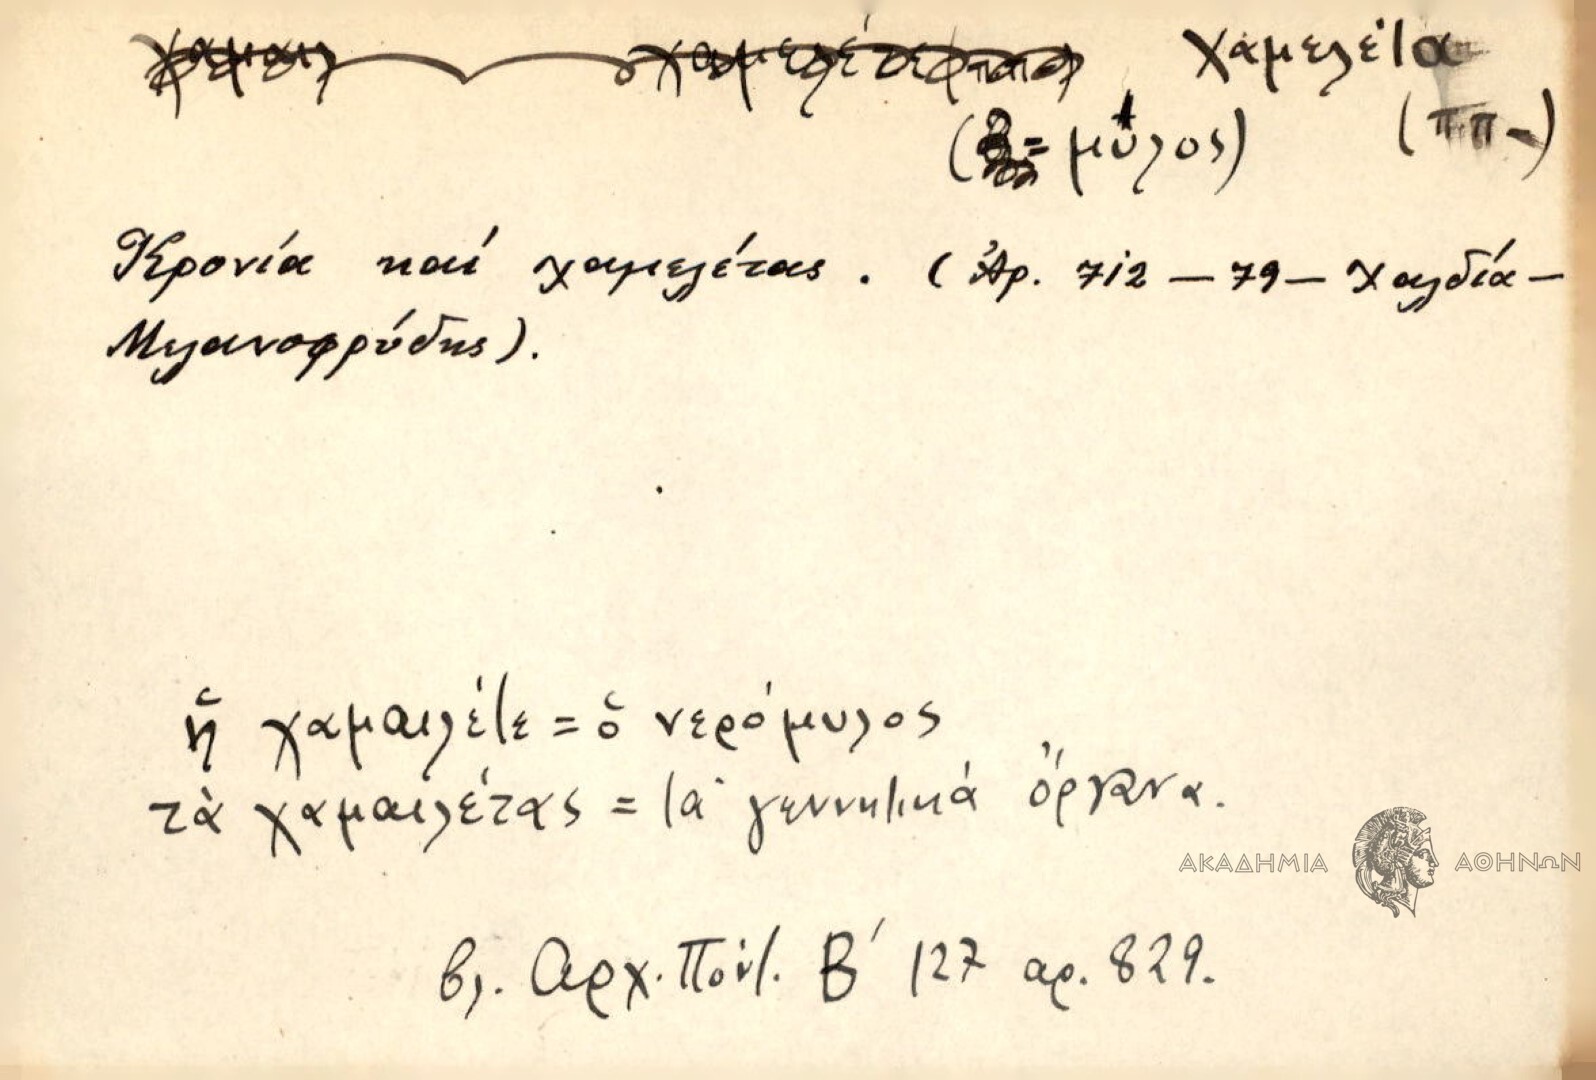 χαμελέτα
(= μύλος) (ππ-)
Κρονία καί χαμελέτας. (Ἀρ. 712 – 79 – Χαλδία –
Μελανοφρύδης).
ἡ χαμαιλέτε = ὁ νερόμυλος
τὰ χαμαιλέτας = τα γεννητικά ὄργανα.
ΑΚΑΔΗΜΙΑ ΑΘΗΝΩΝ
βλ. Αρχ. Πόντ. Β΄ 127 αρ. 829.